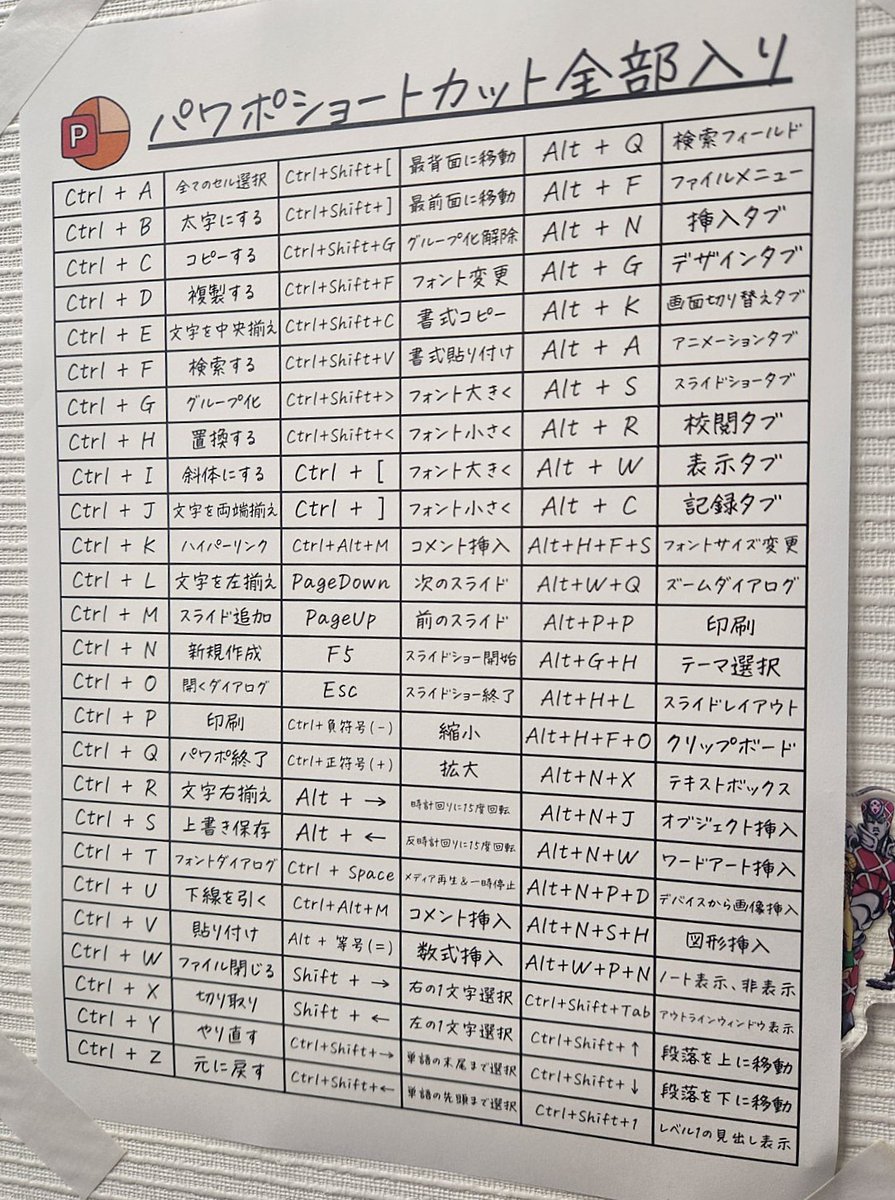 P パワポショートカット全部入り
Ctrl + A 全てのセル選択 Ctrl+Shift+[ 最背面に移動 Alt + Q 検索フィールド
Ctrl + B 太字にする Ctrl+Shift+] 最前面に移動 Alt + F ファイルメニュー
Ctrl + C コピーする Ctrl+Shift+G グループ化解除 Alt + N 挿入タブ
Ctrl + D 複製する Ctrl+Shift+F フォント変更 Alt + G デザインタブ
Ctrl + E 文字を中央揃え Ctrl+Shift+C 書式コピー Alt + K 画面切り替えタブ
Ctrl + F 検索する Ctrl+Shift+V 書式貼り付け Alt + A アニメーションタブ
Ctrl + G グループ化 Ctrl+Shift+> フォント大きく Alt + S スライドショータブ
Ctrl + H 置換する Ctrl+Shift+< フォント小さく Alt + R 校閲タブ
Ctrl + I 斜体にする Ctrl + [ フォント大きく Alt + W 表示タブ
Ctrl + J 文字を両端揃え Ctrl + ] フォント小さく Alt + C 記録タブ
Ctrl + K ハイパーリンク Ctrl+Alt+M コメント挿入 Alt+H+F+S フォントサイズ変更
Ctrl + L 文字を左揃え PageDown 次のスライド Alt+W+Q ズームダイアログ
Ctrl + M スライド追加 PageUp 前のスライド Alt+P+P 印刷
Ctrl + N 新規作成 F5 スライドショー開始 Alt+G+H テーマ選択
Ctrl + O 開くダイアログ Esc スライドショー終了 Alt+H+L スライドレイアウト
Ctrl + P 印刷 Ctrl+負符号(-) 縮小 Alt+H+F+O クリップボード
Ctrl + Q パワポ終了 Ctrl+正符号(+) 拡大 Alt+N+X テキストボックス
Ctrl + R 文字右揃え Alt + → 時計回りに15度回転 Alt+N+J オブジェクト挿入
Ctrl + S 上書き保存 Alt + ← 反時計回りに15度回転 Alt+N+W ワードアート挿入
Ctrl + T フォントダイアログ Ctrl + Space メディア再生&一時停止 Alt+N+P+D デバイスから画像挿入
Ctrl + U 下線を引く Ctrl+Alt+M コメント挿入 Alt+N+S+H 図形挿入
Ctrl + V 貼り付け Alt + 等号(=) 数式挿入 Alt+W+P+N ノート表示、非表示
Ctrl + W ファイル閉じる Shift + → 右の1文字選択 Ctrl+Shift+Tab アウトラインウィンドウ表示
Ctrl + X 切り取り Shift + ← 左の1文字選択 Ctrl+Shift+↑ 段落を上に移動
Ctrl + Y やり直す Ctrl+Shift+→ 単語の末尾まで選択 Ctrl+Shift+↓ 段落を下に移動
Ctrl + Z 元に戻す Ctrl+Shift+← 単語の先頭まで選択 Ctrl+Shift+1 レベル1の見出し表示